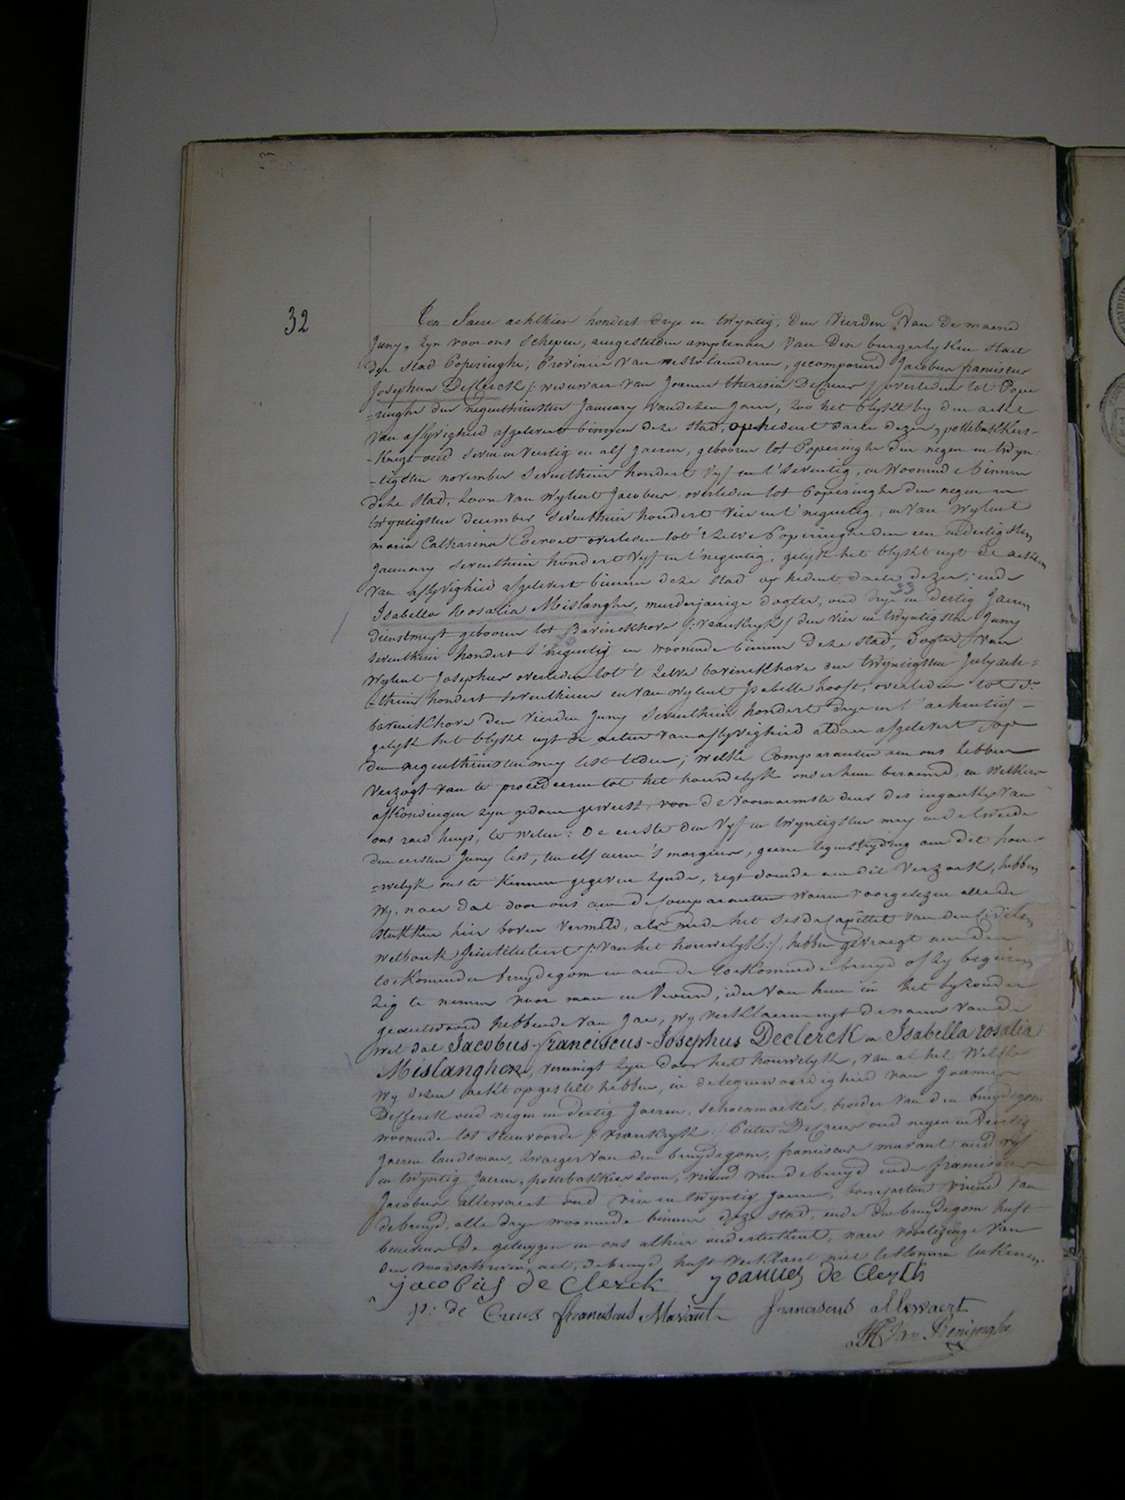 32
Ten Jaere achthien hondert drye en twyntig, den vierden van de maend
Juny, zyn voor ons schepen, aengestelden amptenaer van den burgerlyken staet
der stad Poperinghe, Provincie van westvlaenderen, gecompareerd Jacobus franciscus
Josephus DeClerck /: weduwaer van Joanna theresia DeCreus :/ overleden tot Pope
=ringhe den negenthiensten January van dezen Jaere, zoo het blykt by den acte
van aflyvigheid afgelevert binnen deze stad, op heden date dezer, pottebakkers-
-knegt oud seven en veertig en alf jaeren, gebooren tot Poperinghe den negen en twyn
-tigsten november seventhien hondert vyf en t'seventig, en woonende binnen
deze stad, zoon van wylent Jacobus overleden tot Poperinghe den negen en
twyntigsten december seventhien hondert vier en t'negentig, en van wylent
maria Catharina overleden tot 't zelve Poperinghe den een en dertigsten
January seventhien hondert vyf en t'negentig, gelyk het blykt uyt de acten
van aflyvigheid afgelevert binnen deze stad op heden date dezer; ende
33
Isabella Rosalia Mislanghe, meerderjaerige dogter, oud drye en dertig Jaeren
dienstmeyt gebooren tot Bavinckhove /: vrankryk :/ den vier en twyntigsten Juny
seventhien hondert t'negentig en woonende binnen deze stad, dogter van
wylent Josephus overleden tot 't zelve bavinckhove den twyntigsten July acht-
=thien hondert seventhien en van wylent Isabelle hooft, overleden tot d°
bavinckhove den vierden Juny seventhien hondert drye en t'achentig-
gelyk het blykt uyt de acten van aflyvigheid aldaer afgelevert op
den negenthiensten mey lest leden; welke Comparanten aen ons hebben
verzogt van te procederen tot het houwelyk onder hun beraemd, en welkers
afkondingen zyn gedaen geweest, voor de voornaemste deur des ingank van
ons raed huys, te weten: de eerste den vyf en twyntigsten mey ende tweede
den eersten Juny lest, ten elf uren 's morgens, geene tegenstryding aen dit hou-
=welyk ons te kennen gegeven zynde, regt doende aen dit verzoek, hebben
wy, naer dat door ons aen de Comparanten waeren voorgelezen alle de
stukken hier boven vermeld, als mede het sesde Capittel van den Civilen
wetboek geintituleert /: van het houwelyk :/, hebben gevraegt aen den
toekomende bruydegom en aen de toekomende bruyd of zy begeiren
zig te nemen voor man en vrouw, ider van hun in het byzonder
geantwoord hebbende van Jae, wy verklaeren uyt de naem van de
wet dat Jacobus-franciscus-Josephus Declerck en Isabella rosalia
Mislanghe, vereenigt zyn door het houwelyk, van al het welke
wy dezen acte opgesteld hebben, in de tegenwoordigheid van Joannes
DeClerck oud negen en dertig Jaeren, schoenmaeker, broeder van den bruydegom
woonende tot steenvoorde /: vrankryk :/ Pieter DeCreus oud negen en veertig
Jaeren landsman, zwager van den bruydegom, franciscus marant oud vyf
en twyntig Jaeren, pottebakkers zoon, vriend van de bruyd ende franciscus
Jacobus allewaert oud vier en twyntig Jaeren, vriend van
de bruyd, alle drye woonende binnen deze stad, ende den bruydegom heeft
benevens de getuygen en ons alhier onderteekent, naer voorlezinge van
den voorschreven act, de bruyd heeft verklaert niet te konnen teekenen.
jacobus de Clerck joannes de Clerck
p: de Creus franciscus Marant franciscus allewaert